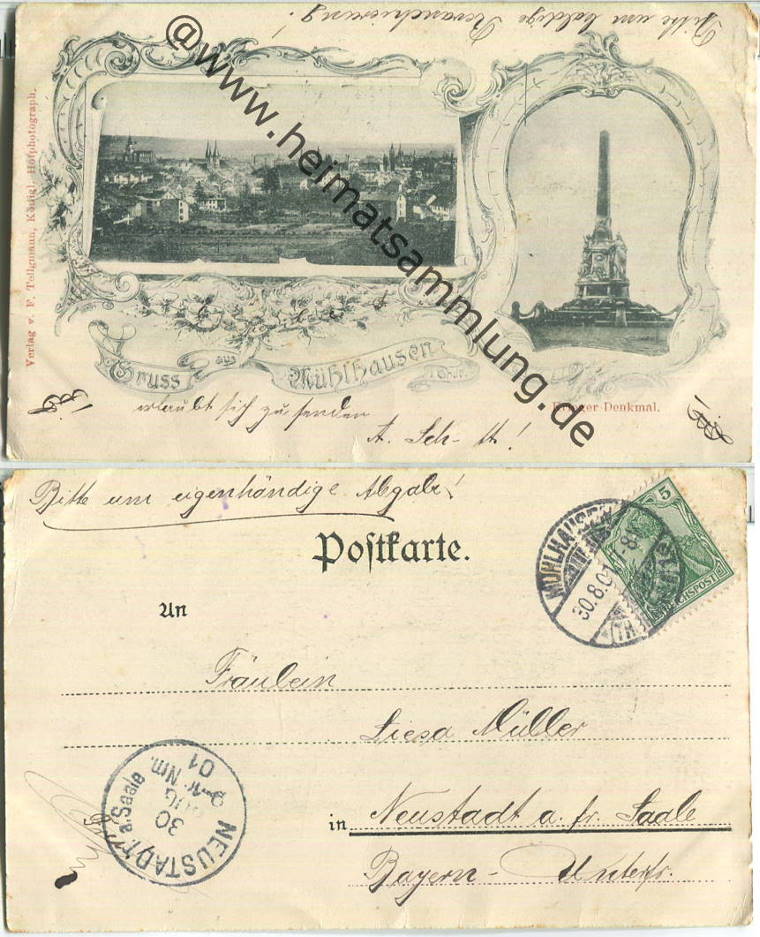 Bitte um baldige Revanchierung!
Verlag v. F. Tellgmann, Königl. Hofphotograph.
@www.heimatsammlung.de
Gruss aus Mühlhausen i. Thür.
Krieger-Denkmal.
erlaubt sich zu senden
A. Sch-tt!
Bitte um eigenhändige Abgabe!
Postkarte.
5
REICHSPOST
MÜHLHAUSEN
30.8.01
(TH
An
Fräulein
Liesa Müller
in Neustadt a. fr. Saale
Bayern - Unterfr.
NEUSTADT a. Saale
30
AUG
Nm.
01